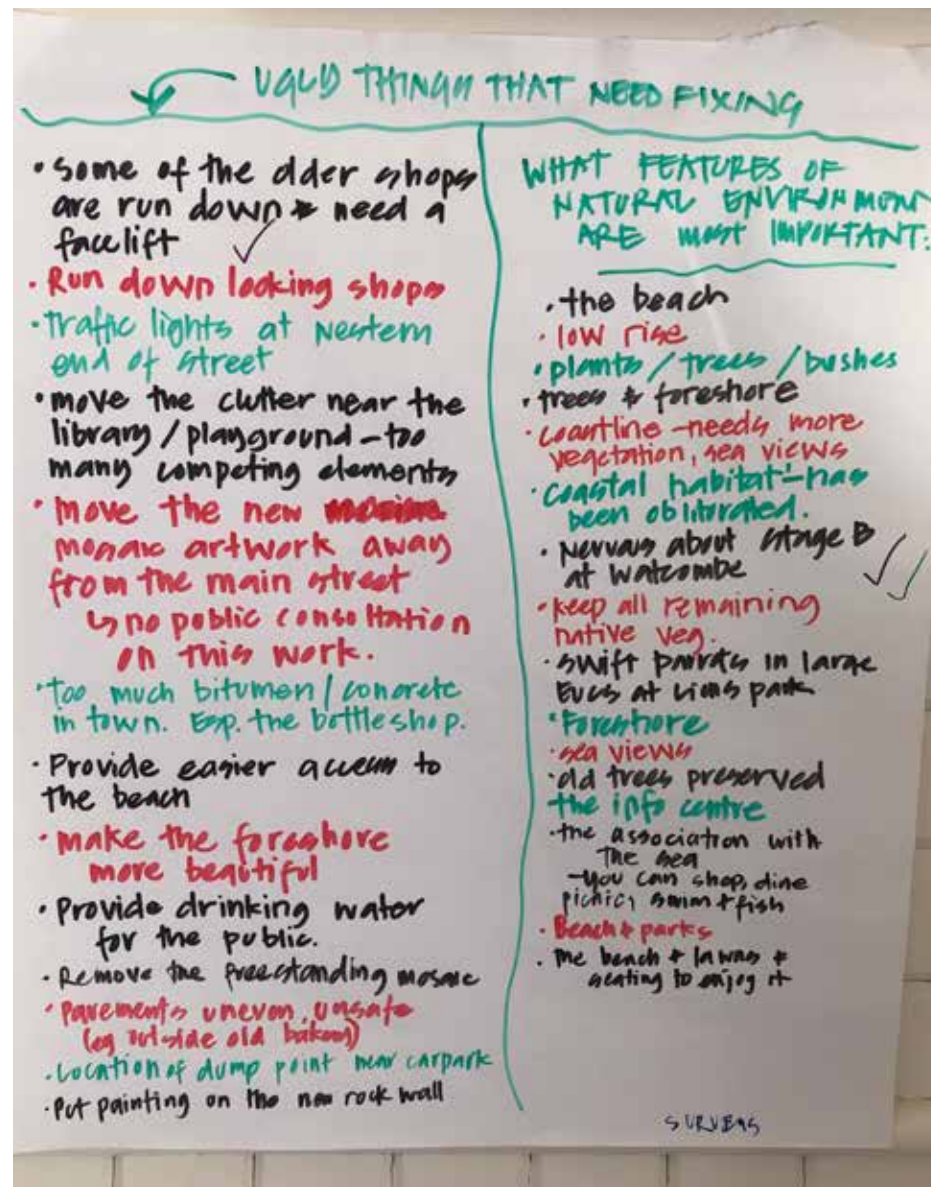 UGLY THINGS THAT NEED FIXING
• Some of the older shops
are run down & need a
facelift
• Run down looking shops
• Traffic lights at western
end of street
• move the clutter near the
library / playground - too
many competing elements
• move the new
mosaic artwork away
from the main street
↳ no public consultation
on this work.
• Too much bitumen / concrete
in town. Esp. the bottleshop.
• Provide easier access to
the beach
• make the foreshore
more beautiful
• Provide drinking water
for the public.
• Remove the freestanding mosaic
• Pavements uneven, unsafe
(eg outside old bakery)
• Location of dump point near carpark
• Put painting on the new rock wall
WHAT FEATURES OF
NATURAL ENVIRONMENT
ARE MOST IMPORTANT:
• the beach
• low rise
• plants / trees / bushes
• trees & foreshore
• coastline - needs more
vegetation, sea views
• coastal habitat - has
been obliterated.
• Nervous about stage B
at Watcombe
• keep all remaining
native veg.
• swift parrots in large
Eucs at Lions park
• Foreshore
• sea views
• old trees preserved
the info centre
• the association with
the sea
- you can shop, dine
picnic, swim + fish
• Beach & parks
• the beach & lawns &
seating to enjoy it
SURVEYS